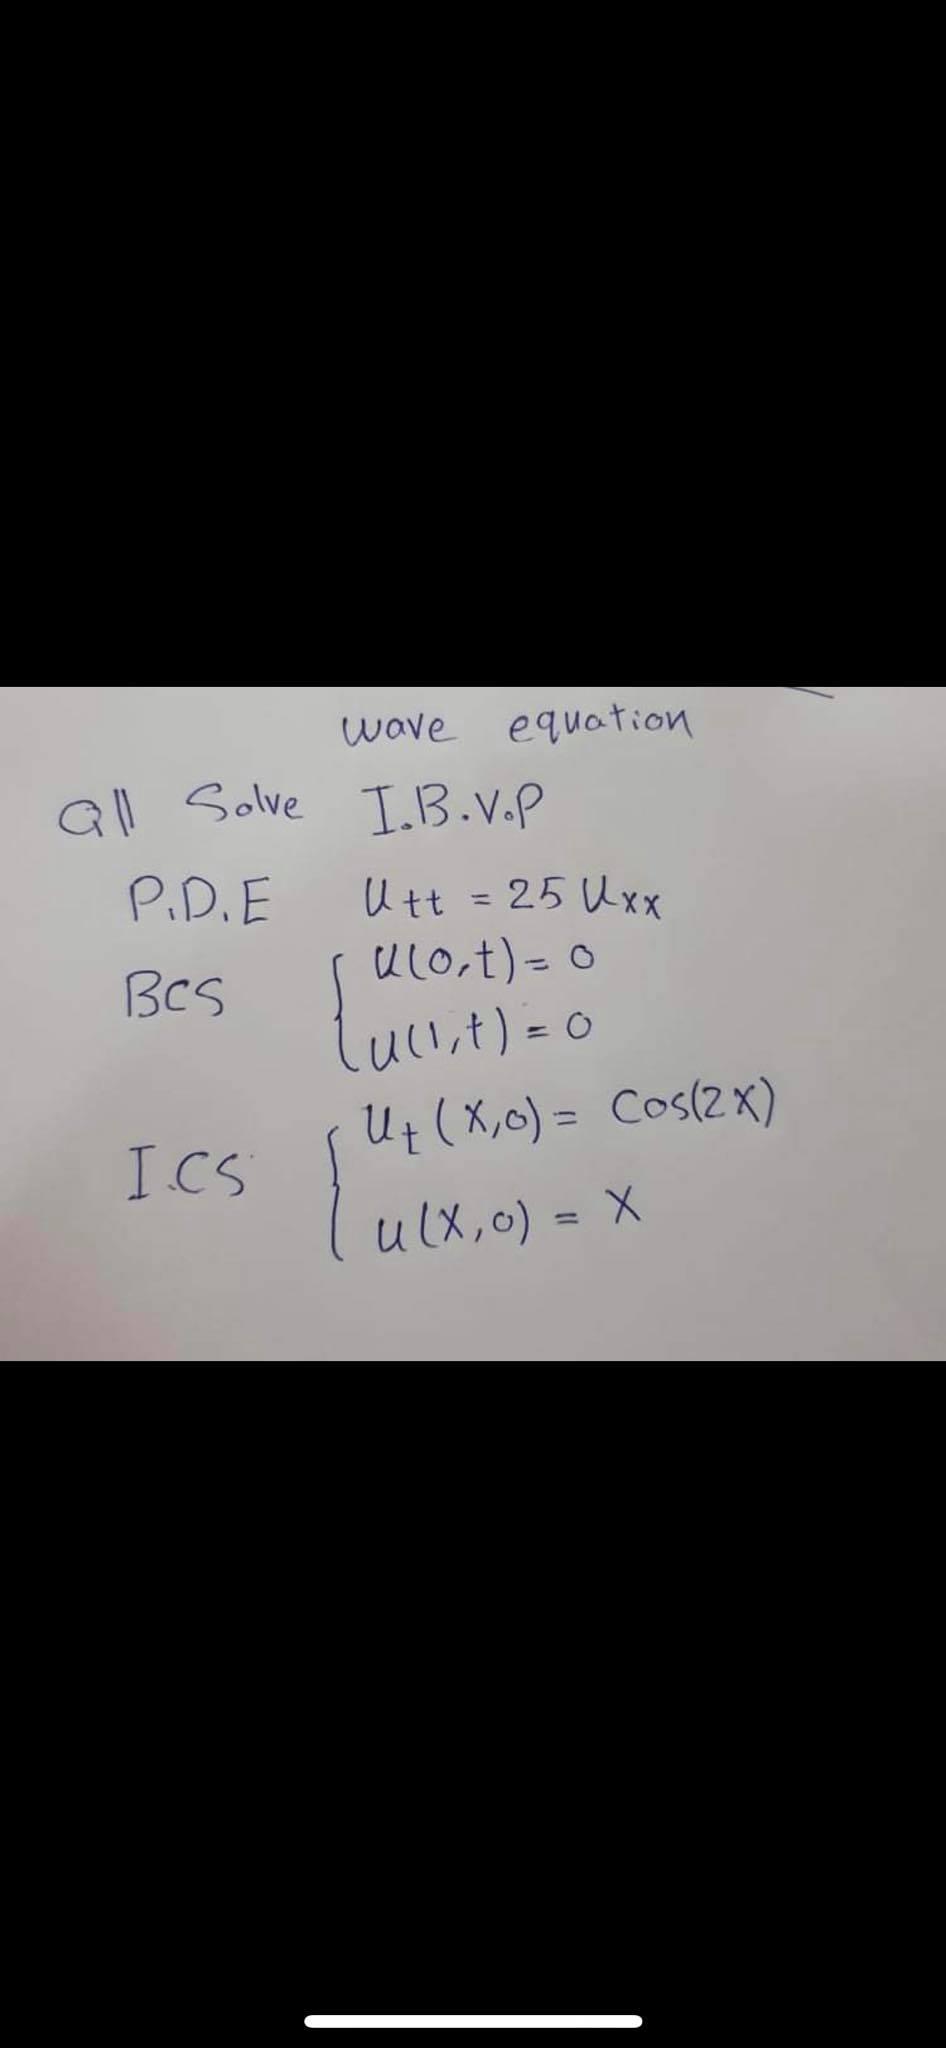 wave equation
Q1\ Solve I.B.V.P
P.D.E Utt = 25 Uxx
BCS { u(0,t) = 0
u(1,t) = 0
I.CS { Ut (x,0) = Cos(2x)
u(x,0) = x